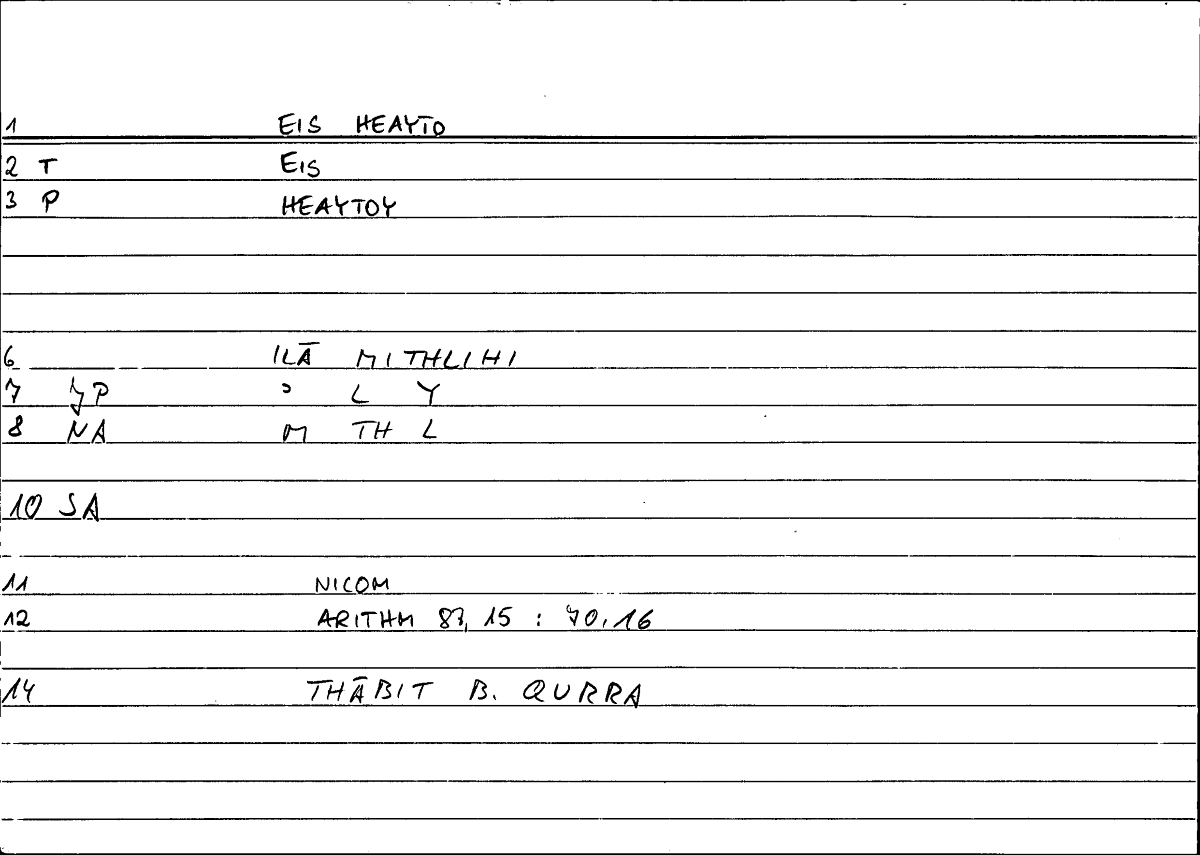 1 EIS HEAYTO
2 T EIS
3 P HEAYTOY
6 ILĀ MITHLIHI
7 JP ʾ L Y
8 NA M TH L
10 SA
11 NICOM
12 ARITHM 87,15 : 70,16
14 THĀBIT B. QURRA